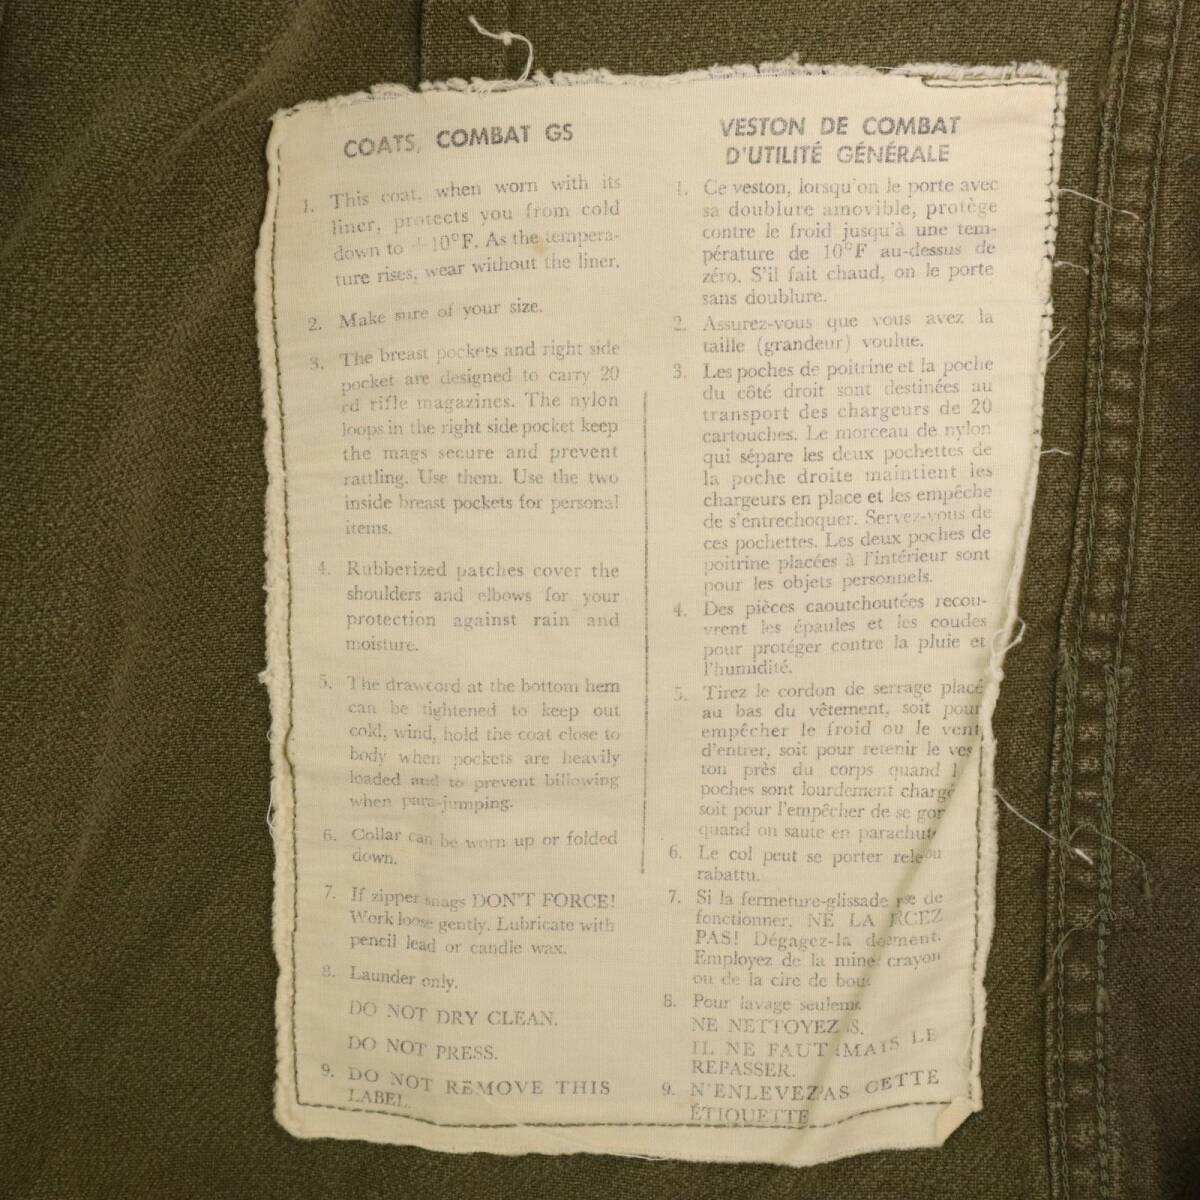 COATS, COMBAT GS
1. This coat, when worn with its
liner, protects you from cold
down to +10°F. As the tempera-
ture rises, wear without the liner.
2. Make sure of your size.
3. The breast pockets and right side
pocket are designed to carry 20
rd rifle magazines. The nylon
loops in the right side pocket keep
the mags secure and prevent
rattling. Use them. Use the two
inside breast pockets for personal
items.
4. Rubberized patches cover the
shoulders and elbows for your
protection against rain and
moisture.
5. The drawcord at the bottom hem
can be tightened to keep out
cold, wind, hold the coat close to
body when pockets are heavily
loaded and to prevent billowing
when para-jumping.
6. Collar can be worn up or folded
down.
7. If zipper snags DON'T FORCE!
Work loose gently. Lubricate with
pencil lead or candle wax.
8. Launder only.
DO NOT DRY CLEAN.
DO NOT PRESS.
9. DO NOT REMOVE THIS
LABEL.
VESTON DE COMBAT
D'UTILITÉ GÉNÉRALE
1. Ce veston, lorsqu'on le porte avec
sa doublure amovible, protège
contre le froid jusqu'à une tem-
pérature de 10°F au-dessus de
zéro. S'il fait chaud, on le porte
sans doublure.
2. Assurez-vous que vous avez la
taille (grandeur) voulue.
3. Les poches de poitrine et la poche
du côté droit sont destinées au
transport des chargeurs de 20
cartouches. Le morceau de nylon
qui sépare les deux pochettes de
la poche droite maintient les
chargeurs en place et les empêche
de s'entrechoquer. Servez-vous de
ces pochettes. Les deux poches de
poitrine placées à l'intérieur sont
pour les objets personnels.
4. Des pièces caoutchoutées recou-
vrent les épaules et les coudes
pour protéger contre la pluie et
l'humidité.
5. Tirez le cordon de serrage placé
au bas du vêtement, soit pour
empêcher le froid ou le vent
d'entrer, soit pour retenir le ves
ton près du corps quand
poches sont lourdement charg
soit pour l'empêcher de se gon
quand on saute en parachut
6. Le col peut se porter rele ou
rabattu.
7. Si la fermeture-glissade de
fonctionner, NE LA RCEZ
PAS! Dégagez-la ment.
Employez de la mine crayon
ou de la cire de bou
8. Pour lavage seulem
NE NETTOYEZ S.
IL NE FAUT MAIS LE
REPASSER.
9. N'ENLEVEZ AS CETTE
ÉTIQUETTE